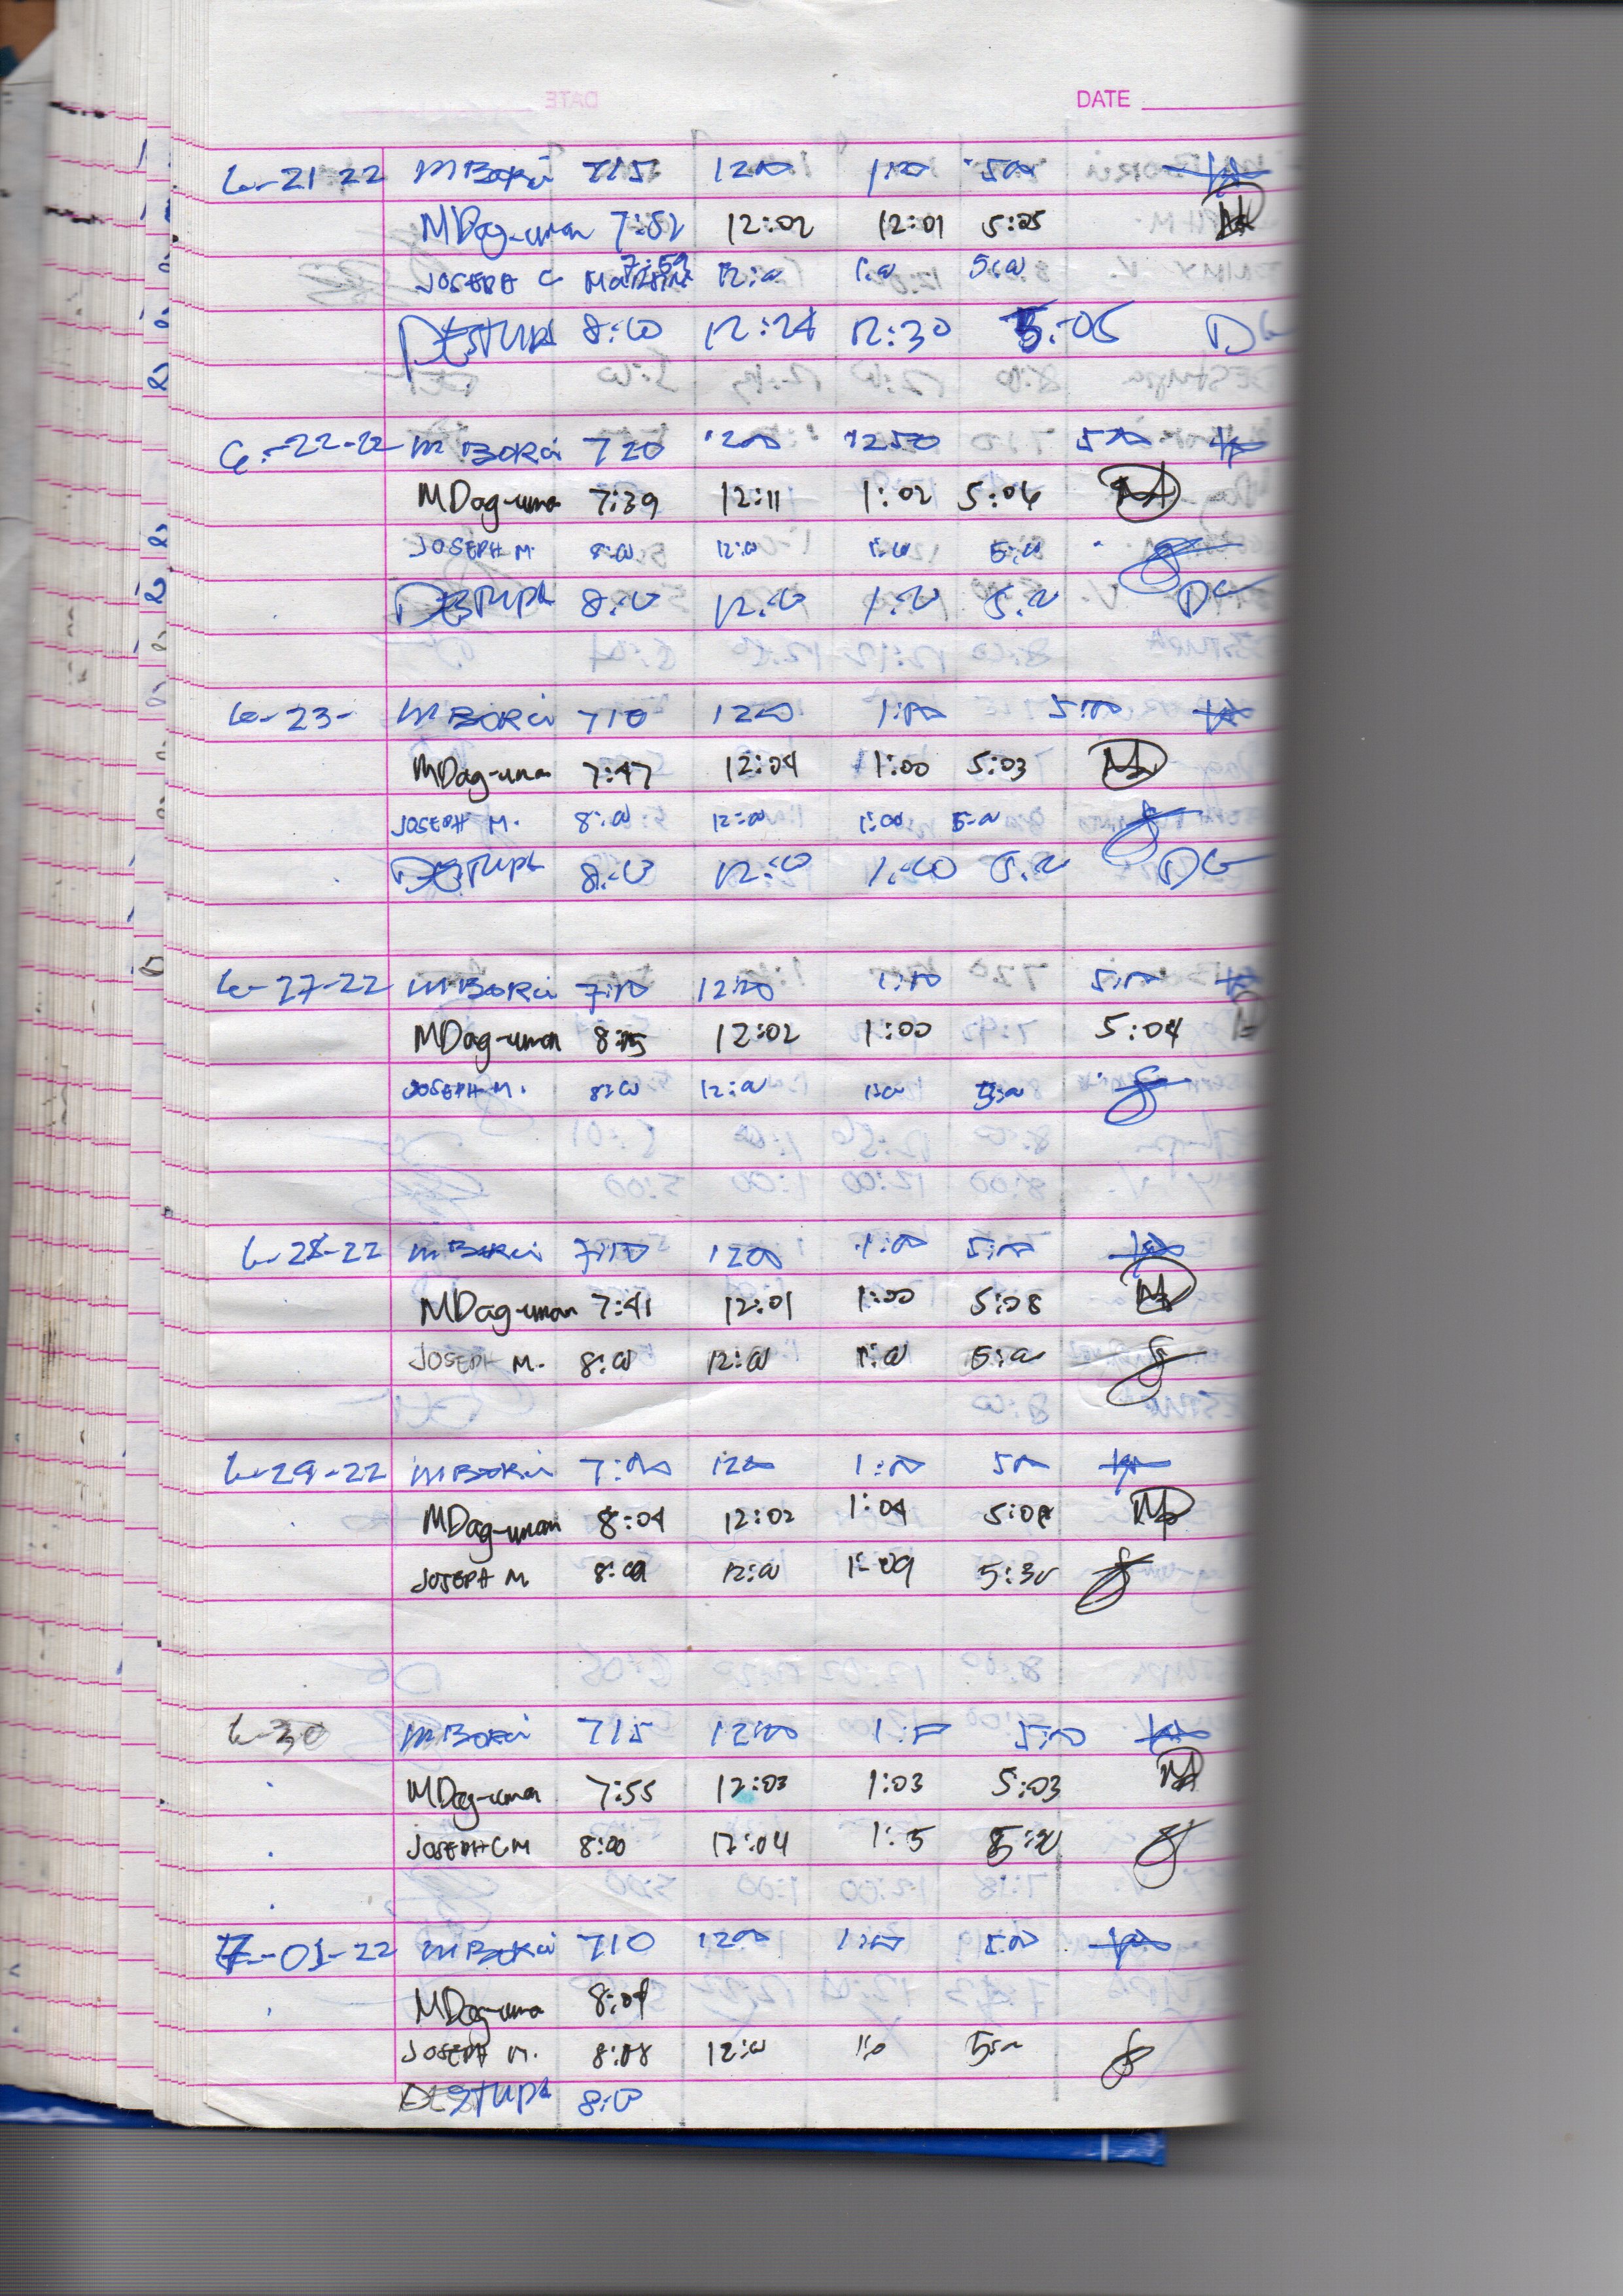 DATE
6-21-22 M Borci 715 1200 100 500
MDag-uman 7:52 12:02 12:01 5:05
JOSEPH C 7:59 12:00 1:00 5:00
DESTUPA 8:00 12:24 12:30 5:05
6-22-22 M Borci 720 1200 1250 500
MDag-uma 7:39 12:11 1:02 5:04
JOSEPH M. 8:00 12:00 1:00 5:00
DESTUPA 8:00 12:00 1:00 5:00 DG
6-23- M Borci 710 1200 1:00 5:00
MDag-uma 7:47 12:04 1:00 5:03
JOSEPH M. 8:00 12:00 1:00 5:00
DESTUPA 8:00 12:00 1:00 5:00 DG
6-27-22 M Borci 7:10 1200 1:00 5:00
MDag-uman 8:15 12:02 1:00 5:04
JOSEPH M. 8:00 12:00 1:00 5:00
6-28-22 M Borci 7:10 1200 1:00 5:00
MDag-uman 7:41 12:01 1:00 5:08
JOSEPH M. 8:00 12:00 1:00 5:00
6-29-22 M Borci 7:00 1200 1:00 500
MDag-uman 8:04 12:02 1:04 5:08
JOSEPH M. 8:09 12:00 1:09 5:30
6-30 M Borci 715 1200 1:00 5:00
MDag-uman 7:55 12:03 1:03 5:03
JOSEPH C M 8:00 12:04 1:5 5:20
7-01-22 M Borci 710 1200 1:00 5:00
MDag-uma 8:04
JOSEPH M. 8:08 12:00 1:0 5:00
DESTUPA 8:00